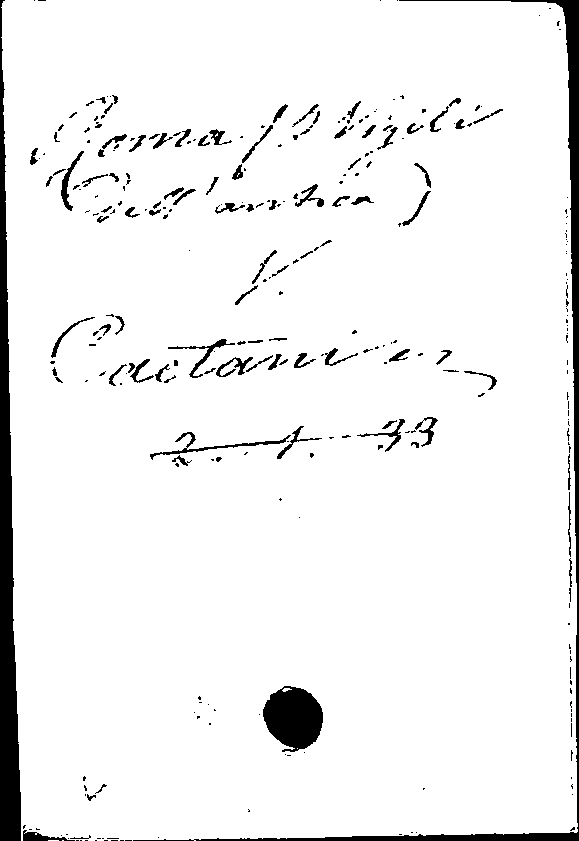 Roma /. I Vigili
(Dell'antica)
V.
Caetani
2. 1. 33